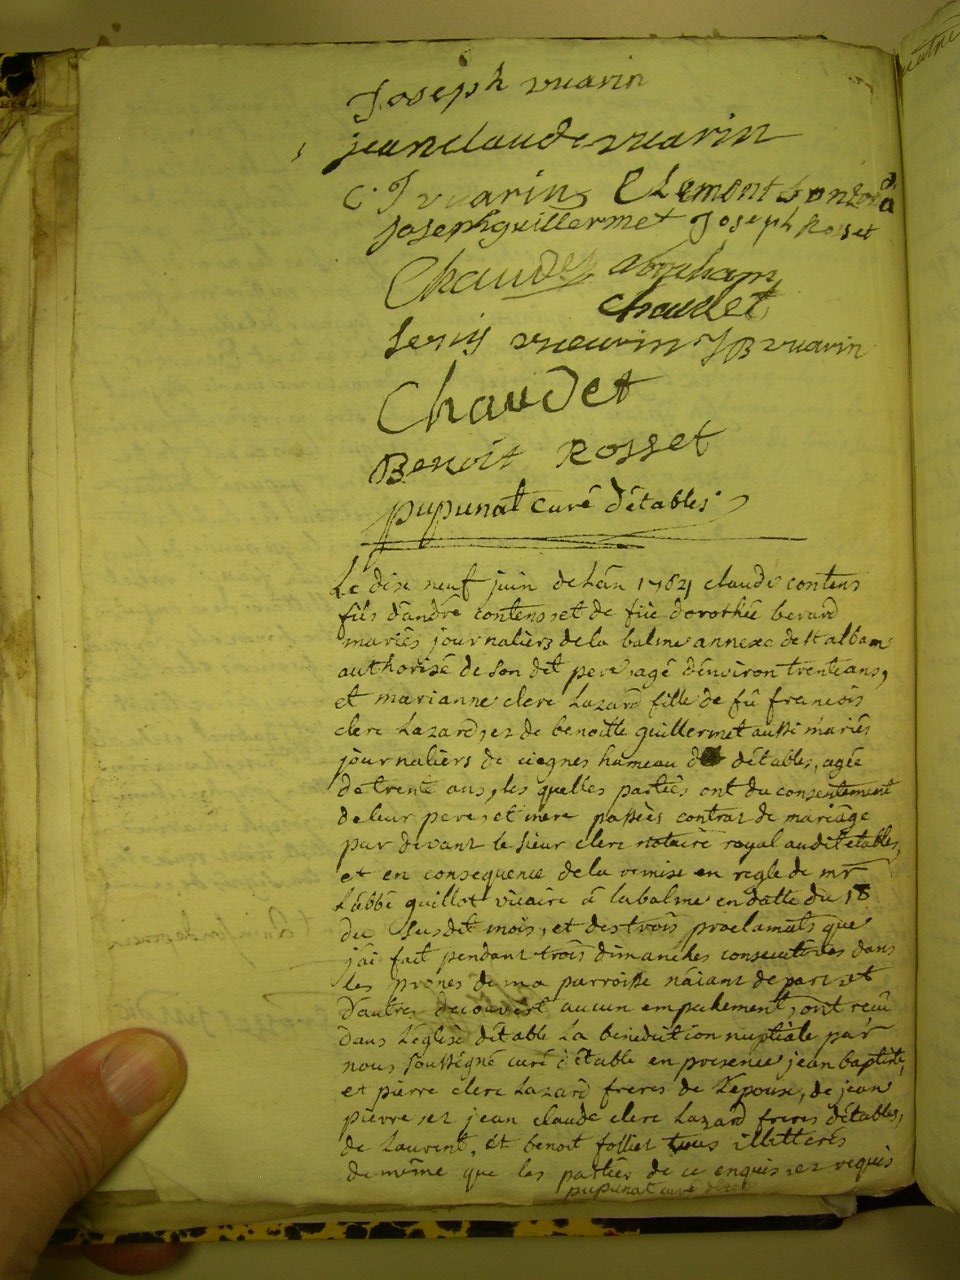 Joseph vuarin
jean claude vuarin
C. J vuarin Clemont
Joseph guillermet Joseph Rosset
Chaudet abraham
chaudet
Denis vueurin JB vuarin
Chaudet
Benoit Rosset
pupunat curé d'étables
Le dixe neuf juin de l'én claude contens
fils d'andré contens et de fûe dorothée berard
mariés journaliers de la balme annexe de St alban
authorisé de son dit pere, agé d'environ trente ans,
et marianne clerc Lazard fille de fû francois
clerc Lazard, et de benoitte guillermet aussi mariés
journaliers de ciegnes hameau d'étables, agée
de trente ans, les quelles parties ont du consentement
de leur pere, et mere passées contrat de mariage
par devant le sieur clerc notaire royal audit etables,
et en consequence de la remise en regle de mr
L'abbé guillot vicaire à labalme en datte du 18
du susdit mois, et des trois proclamats que
j'ai fait pendant trois dimanches consecutives dans
les prones de ma parroisse n'aiant de part et
d'autres découvert aucun empechement, ont reçû
dans L'eglise d'étable La benediction nuptiale par
nous soussigné curé d'étable en presence jean baptiste,
et pierre clerc Lazard freres de L'épouse, de jean
pierre et jean claude clerc Lazard freres d'étables,
de Laurent, et benoit folliet tous illitterés
de même que les parties de ce enquis et requis
pupunat curé